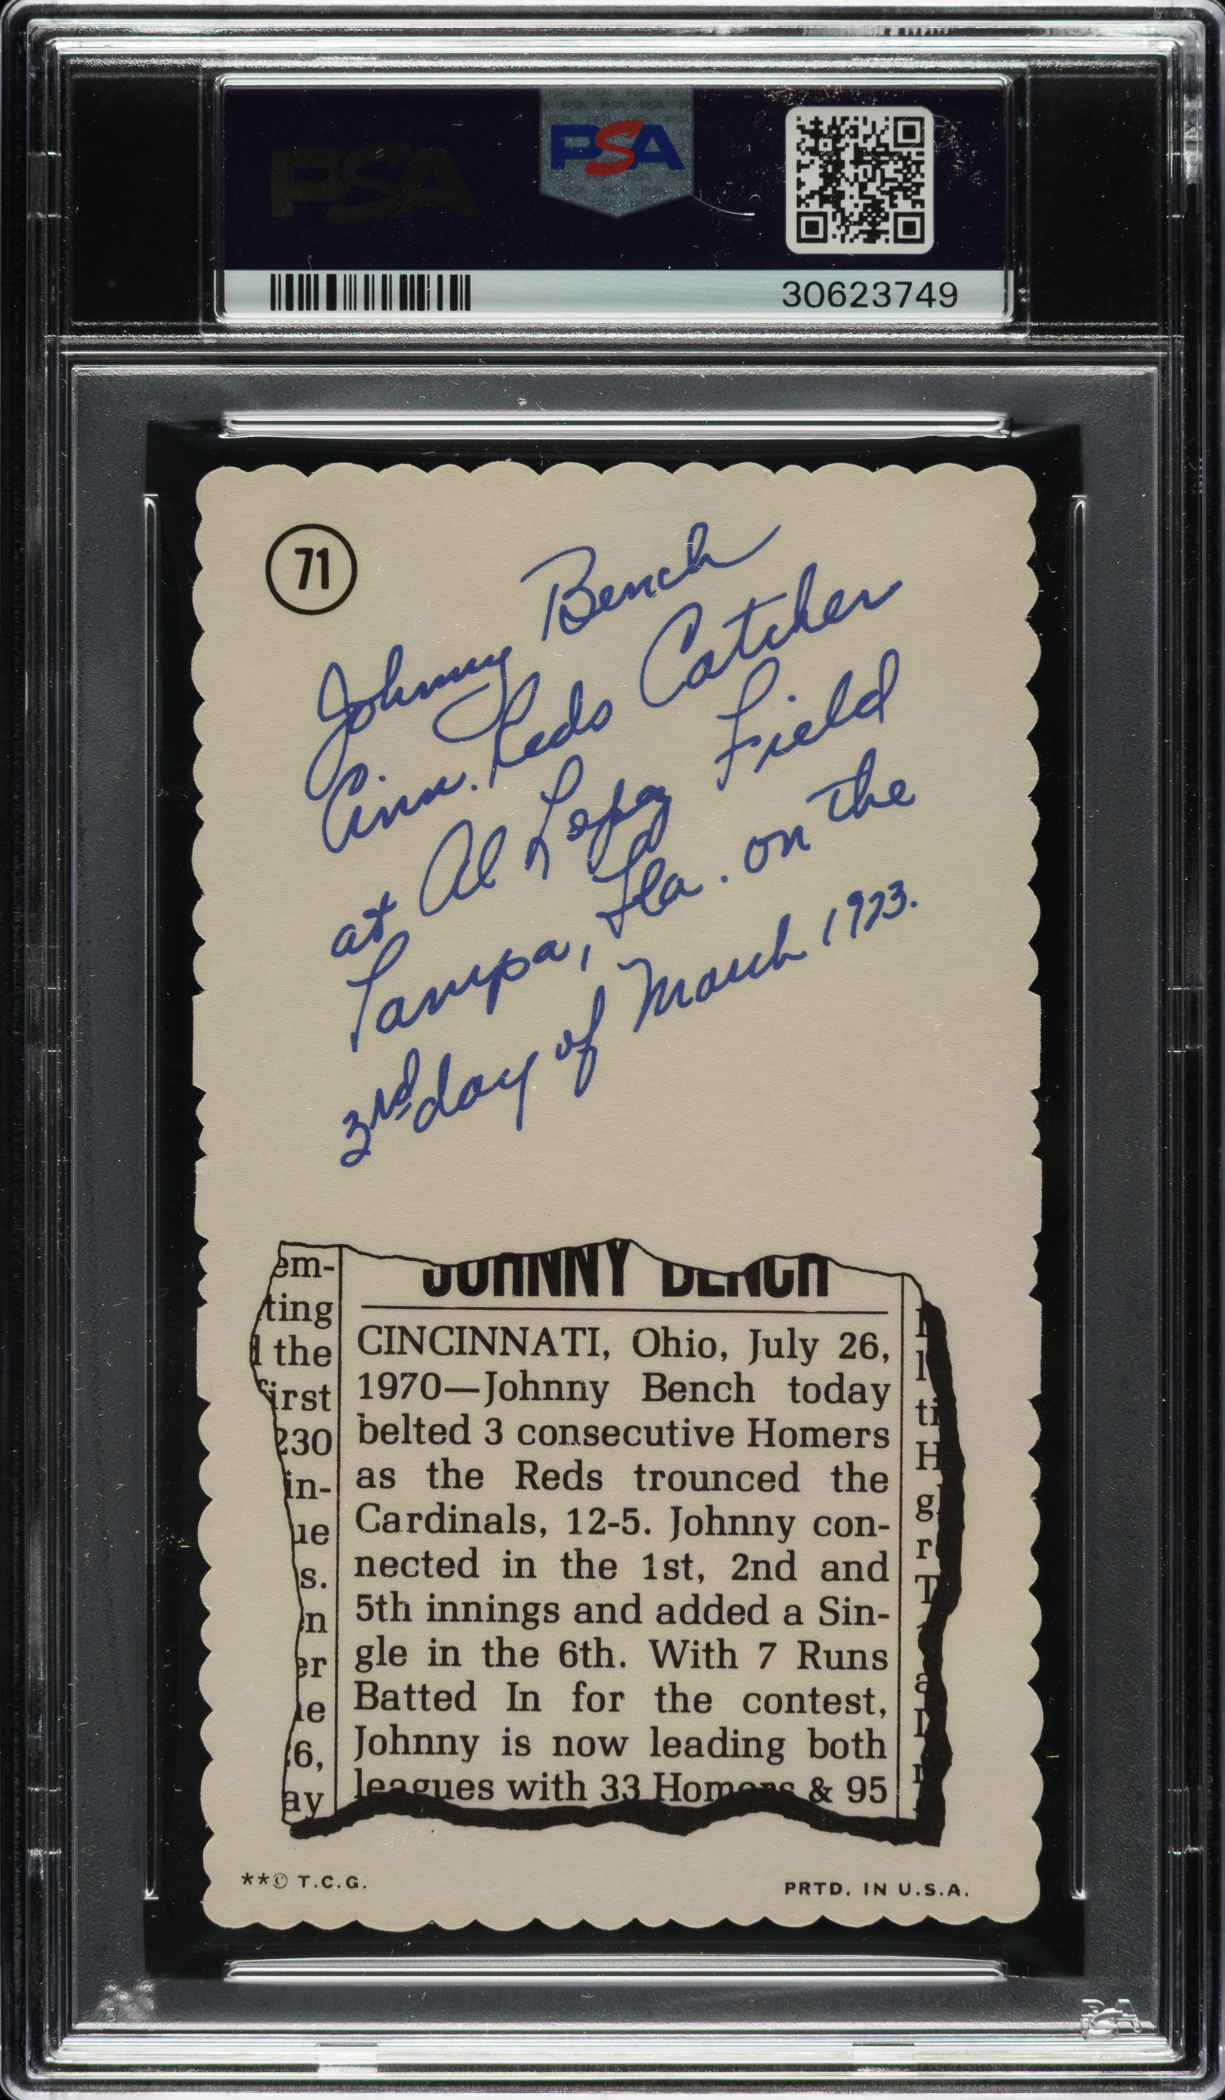 PSA
PSA
30623749
71
Johnny Bench
Cinn. Reds Catcher
at Al Lopez Field
Tampa, Fla. on the
3rd day of March 1973.
JOHNNY BENCH
CINCINNATI, Ohio, July 26,
1970—Johnny Bench today
belted 3 consecutive Homers
as the Reds trounced the
Cardinals, 12-5. Johnny con-
nected in the 1st, 2nd and
5th innings and added a Sin-
gle in the 6th. With 7 Runs
Batted In for the contest,
Johnny is now leading both
leagues with 33 Homers & 95
em-
ting
the
first
230
in-
ue
s.
en
er
he
6,
ay
**© T.C.G.
PRTD. IN U.S.A.
PSA